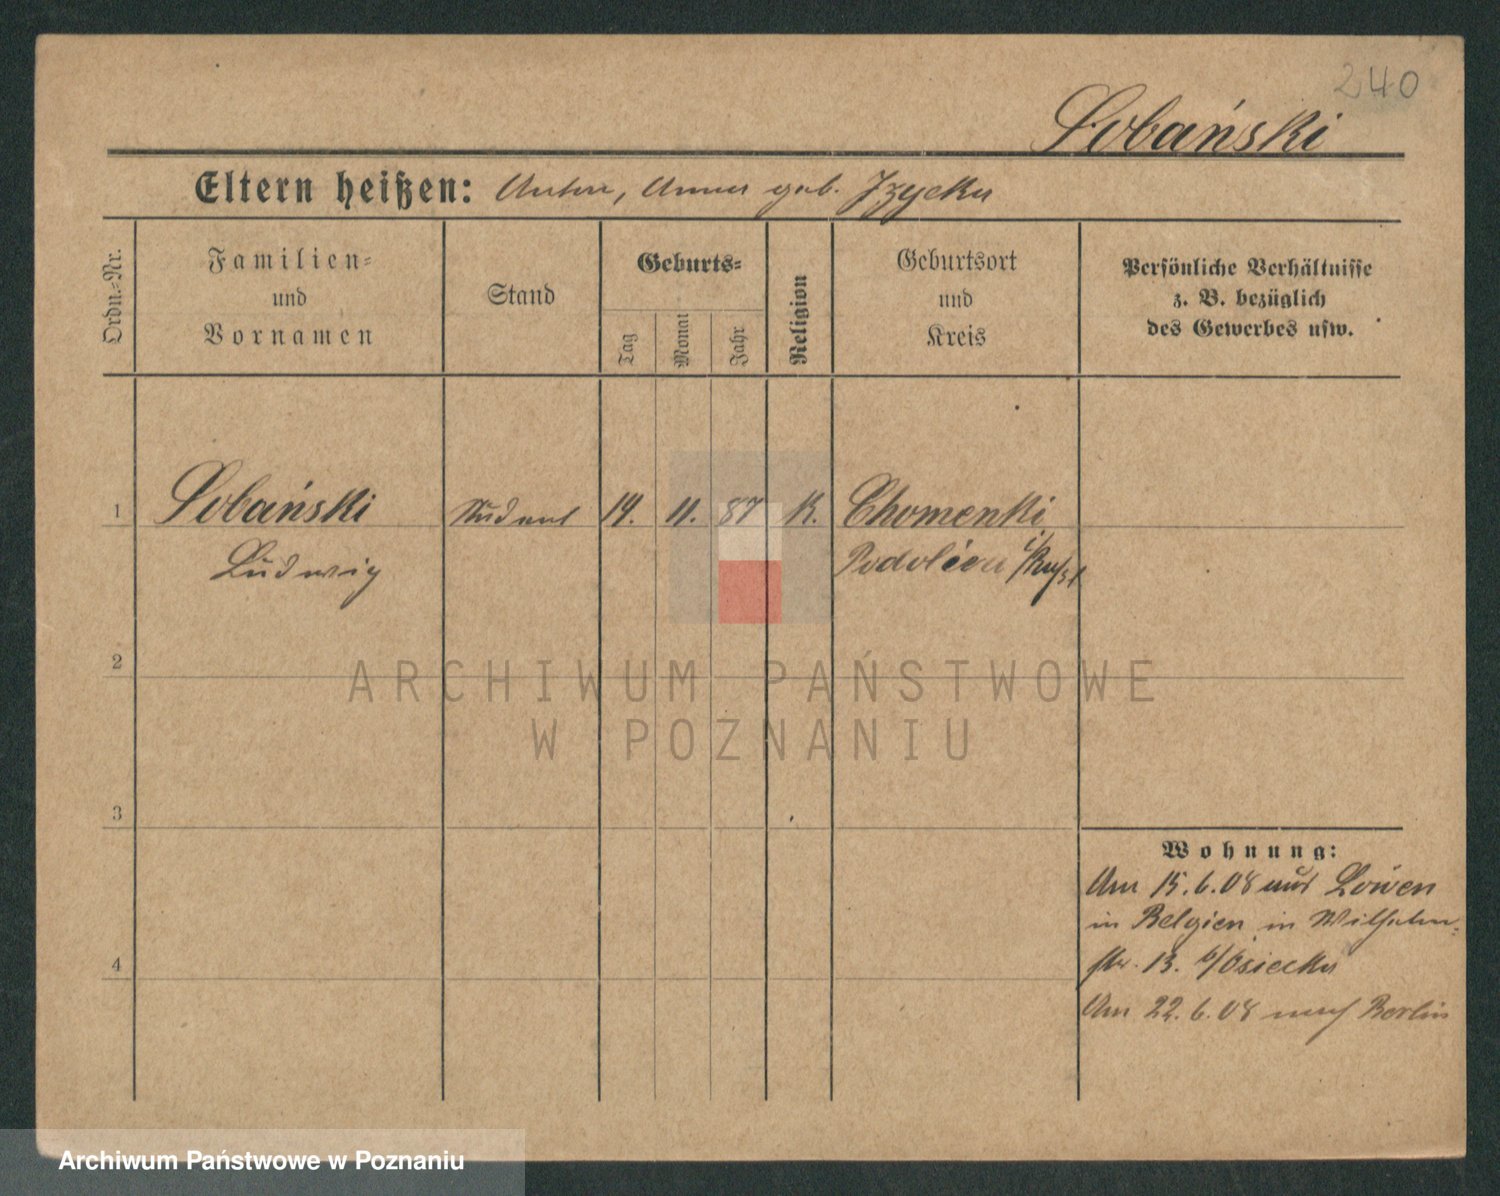 240
Sobański
Eltern heißen: Anton, Anna geb. Izycka
Ordn.-Nr.
Familien-
und
Vornamen
Stand
Geburts-
Tag
Monat
Jahr
Religion
Geburtsort
und
Kreis
Persönliche Verhältnisse
z. B. bezüglich
des Gewerbes usw.
1 Sobański Student 14. 11. 87 K. Chomenki
Ludwig Podolien i/Rußl
2
ARCHIWUM PAŃSTWOWE
W POZNANIU
3
Wohnung:
Am 15.6.08 aus Löwen
in Belgien in Wilhelm-
str. 13. b/Osiecka
4
Am 22.6.08 nach Berlin
Archiwum Państwowe w Poznaniu